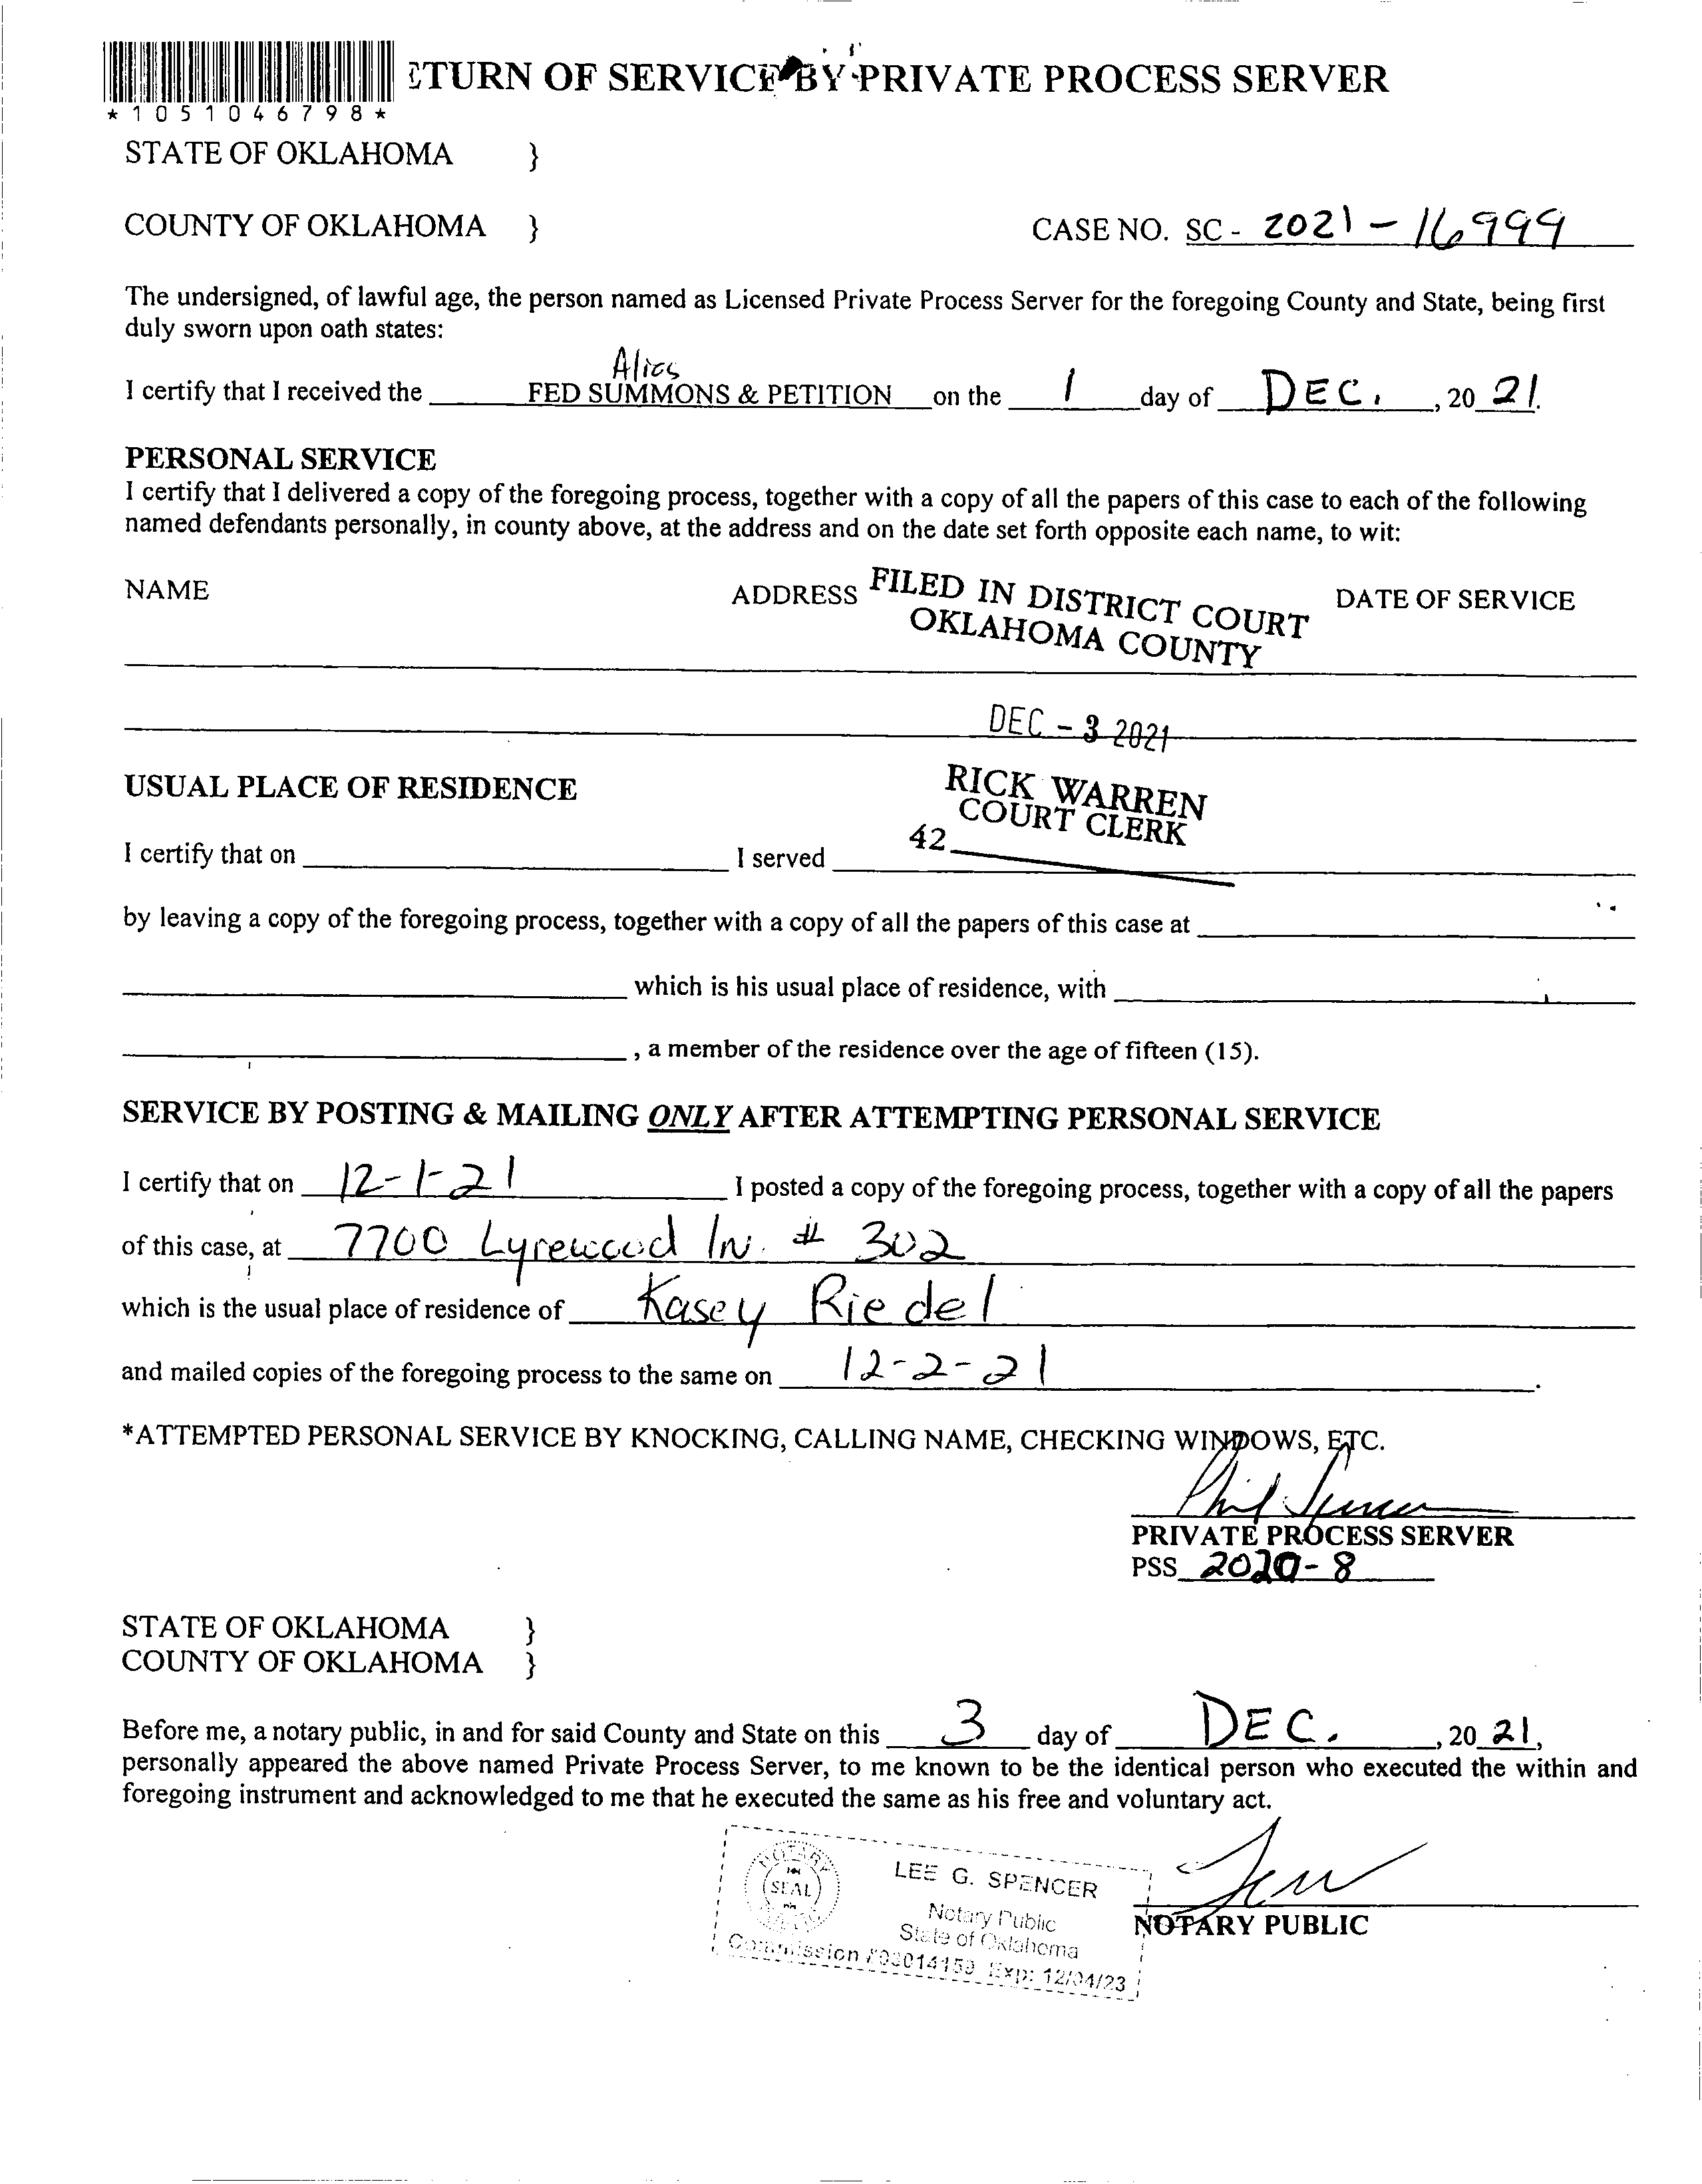 ETURN OF SERVICE BY PRIVATE PROCESS SERVER
*1051046798*
STATE OF OKLAHOMA }
COUNTY OF OKLAHOMA } CASE NO. SC - 2021 - 16999
The undersigned, of lawful age, the person named as Licensed Private Process Server for the foregoing County and State, being first
duly sworn upon oath states:
Alias
I certify that I received the FED SUMMONS & PETITION on the 1 day of DEC. , 20 21.
PERSONAL SERVICE
I certify that I delivered a copy of the foregoing process, together with a copy of all the papers of this case to each of the following
named defendants personally, in county above, at the address and on the date set forth opposite each name, to wit:
NAME ADDRESS DATE OF SERVICE
FILED IN DISTRICT COURT
OKLAHOMA COUNTY
DEC - 3 2021
RICK WARREN
COURT CLERK
42
USUAL PLACE OF RESIDENCE
I certify that on I served
by leaving a copy of the foregoing process, together with a copy of all the papers of this case at
which is his usual place of residence, with
, a member of the residence over the age of fifteen (15).
SERVICE BY POSTING & MAILING ONLY AFTER ATTEMPTING PERSONAL SERVICE
I certify that on 12-1-21 I posted a copy of the foregoing process, together with a copy of all the papers
of this case, at 7700 Lyrewood ln. # 302
which is the usual place of residence of Kasey Riedel
and mailed copies of the foregoing process to the same on 12-2-21 .
*ATTEMPTED PERSONAL SERVICE BY KNOCKING, CALLING NAME, CHECKING WINDOWS, ETC.
PRIVATE PROCESS SERVER
PSS 2020-8
STATE OF OKLAHOMA }
COUNTY OF OKLAHOMA }
Before me, a notary public, in and for said County and State on this 3 day of DEC. , 20 21,
personally appeared the above named Private Process Server, to me known to be the identical person who executed the within and
foregoing instrument and acknowledged to me that he executed the same as his free and voluntary act.
NOTARY
SEAL
LEE G. SPENCER
Notary Public
State of Oklahoma
Commission #03014159 Exp: 12/04/23
NOTARY PUBLIC